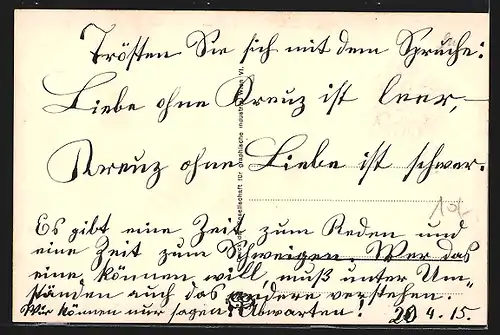 Trösten Sie sich mit dem Spruche:
Liebe ohne Kreuz ist leer,-
Kreuz ohne Liebe ist schwer.
Es gibt eine Zeit zum Reden und
eine Zeit zum Schweigen. Wer das
eine können will, muß unter Um=
ständen auch das andere verstehen.
Wir können nur sagen: Abwarten! 20 4.15.
Gesellschaft für graphische Industrie, Wien VI.